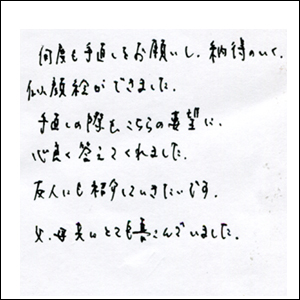 何度も手直しをお願いし、納得のいく、
似顔絵ができました。
手直しの際も、こちらの要望に、
心良く答えてくれました。
友人にも紹介していきたいです。
父、母共にとても喜こんでいました。